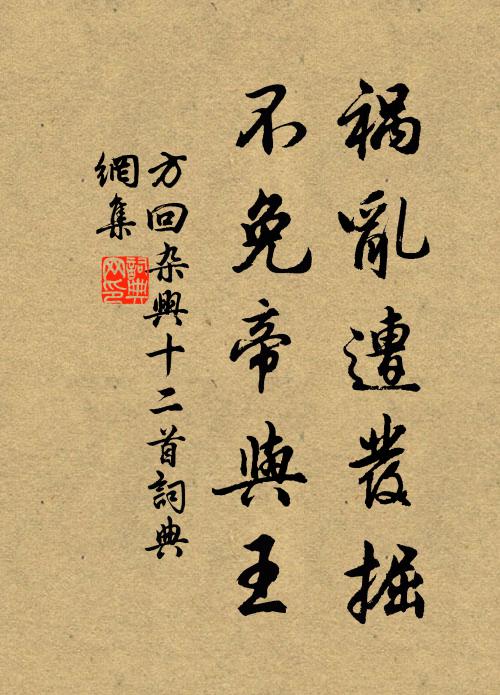 祸亂遭發掘
不免帝與王
方回杂興十二首詞典
網集
詞典网印